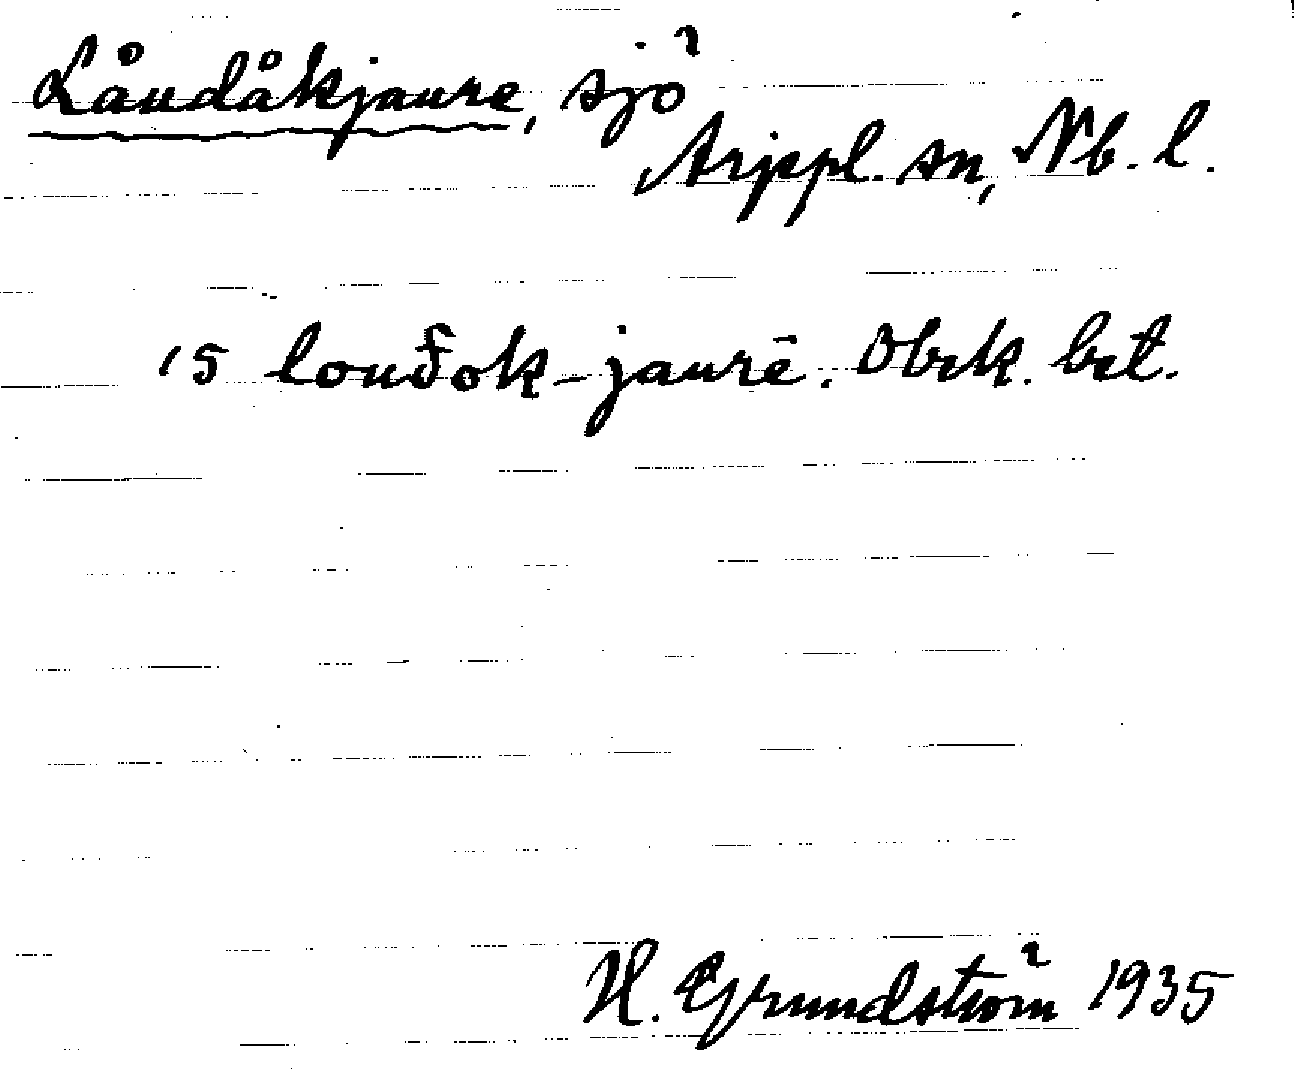 Låudåkjaure, sjö
Arjepl. sn, Nb. l.
15 louđok-jaurē. Obek. bet.
H. Grundström 1935